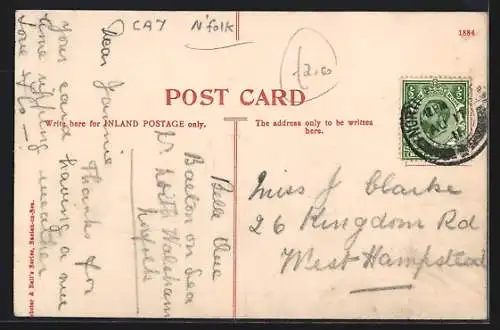 CA7 N'folk
1884
£2.60
POST CARD
Write here for INLAND POSTAGE only.
The address only to be written
here.
Belle Vue
Bacton on Sea
Nr North Walsham
Norfolk
Dear Jannie
Thanks for
your card having a nice
time ripping weather
love
Miss J Clarke
26 Kingdom Rd
West Hampstead
& Bull's Series, Bacton-on-Sea.
NORTH